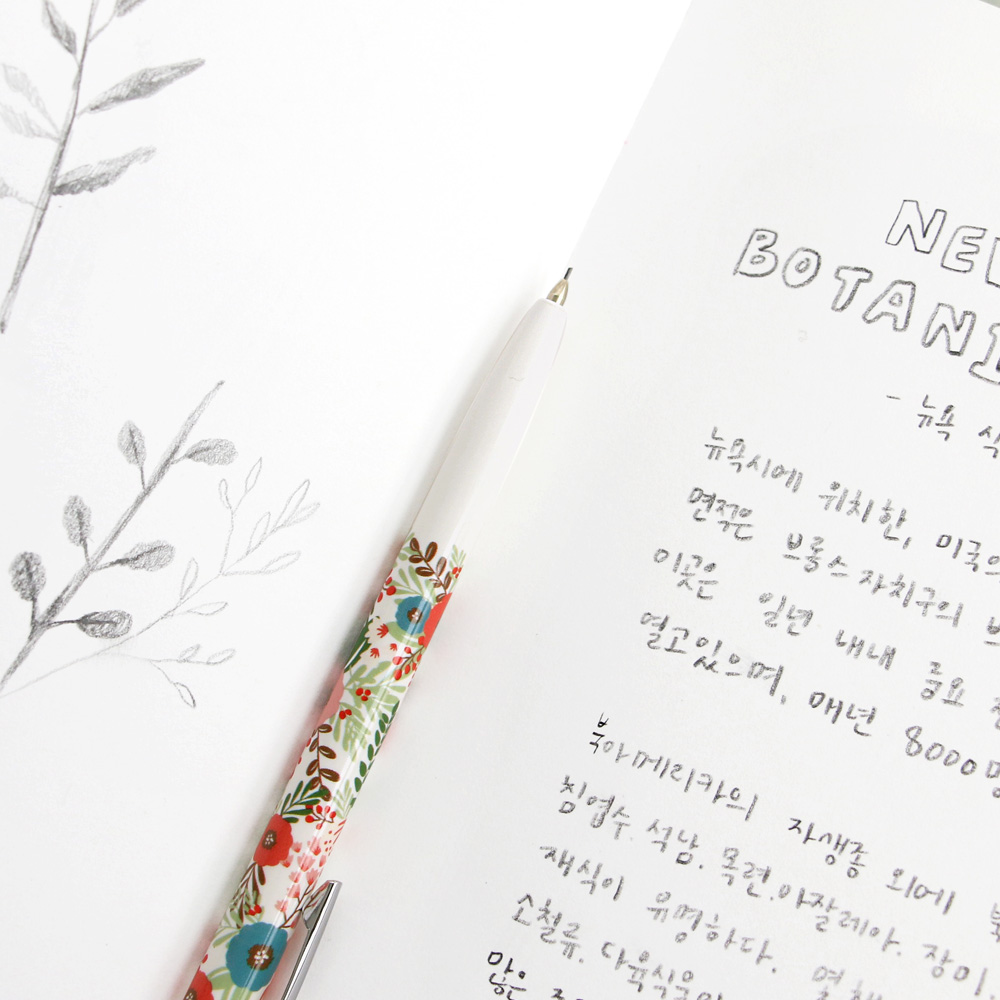 NEW
BOTANI
- 뉴욕 식
뉴욕시에 위치한, 미국의
면적은 브롱스 자치구의 브
이곳은 일년 내내 중요
열고있으며, 매년 8000명
북아메리카의 자생종 외에 북
침엽수. 석남. 목련. 아잘레아. 장미.
재식이 유명하다. 열
소철류. 다육식물
많은